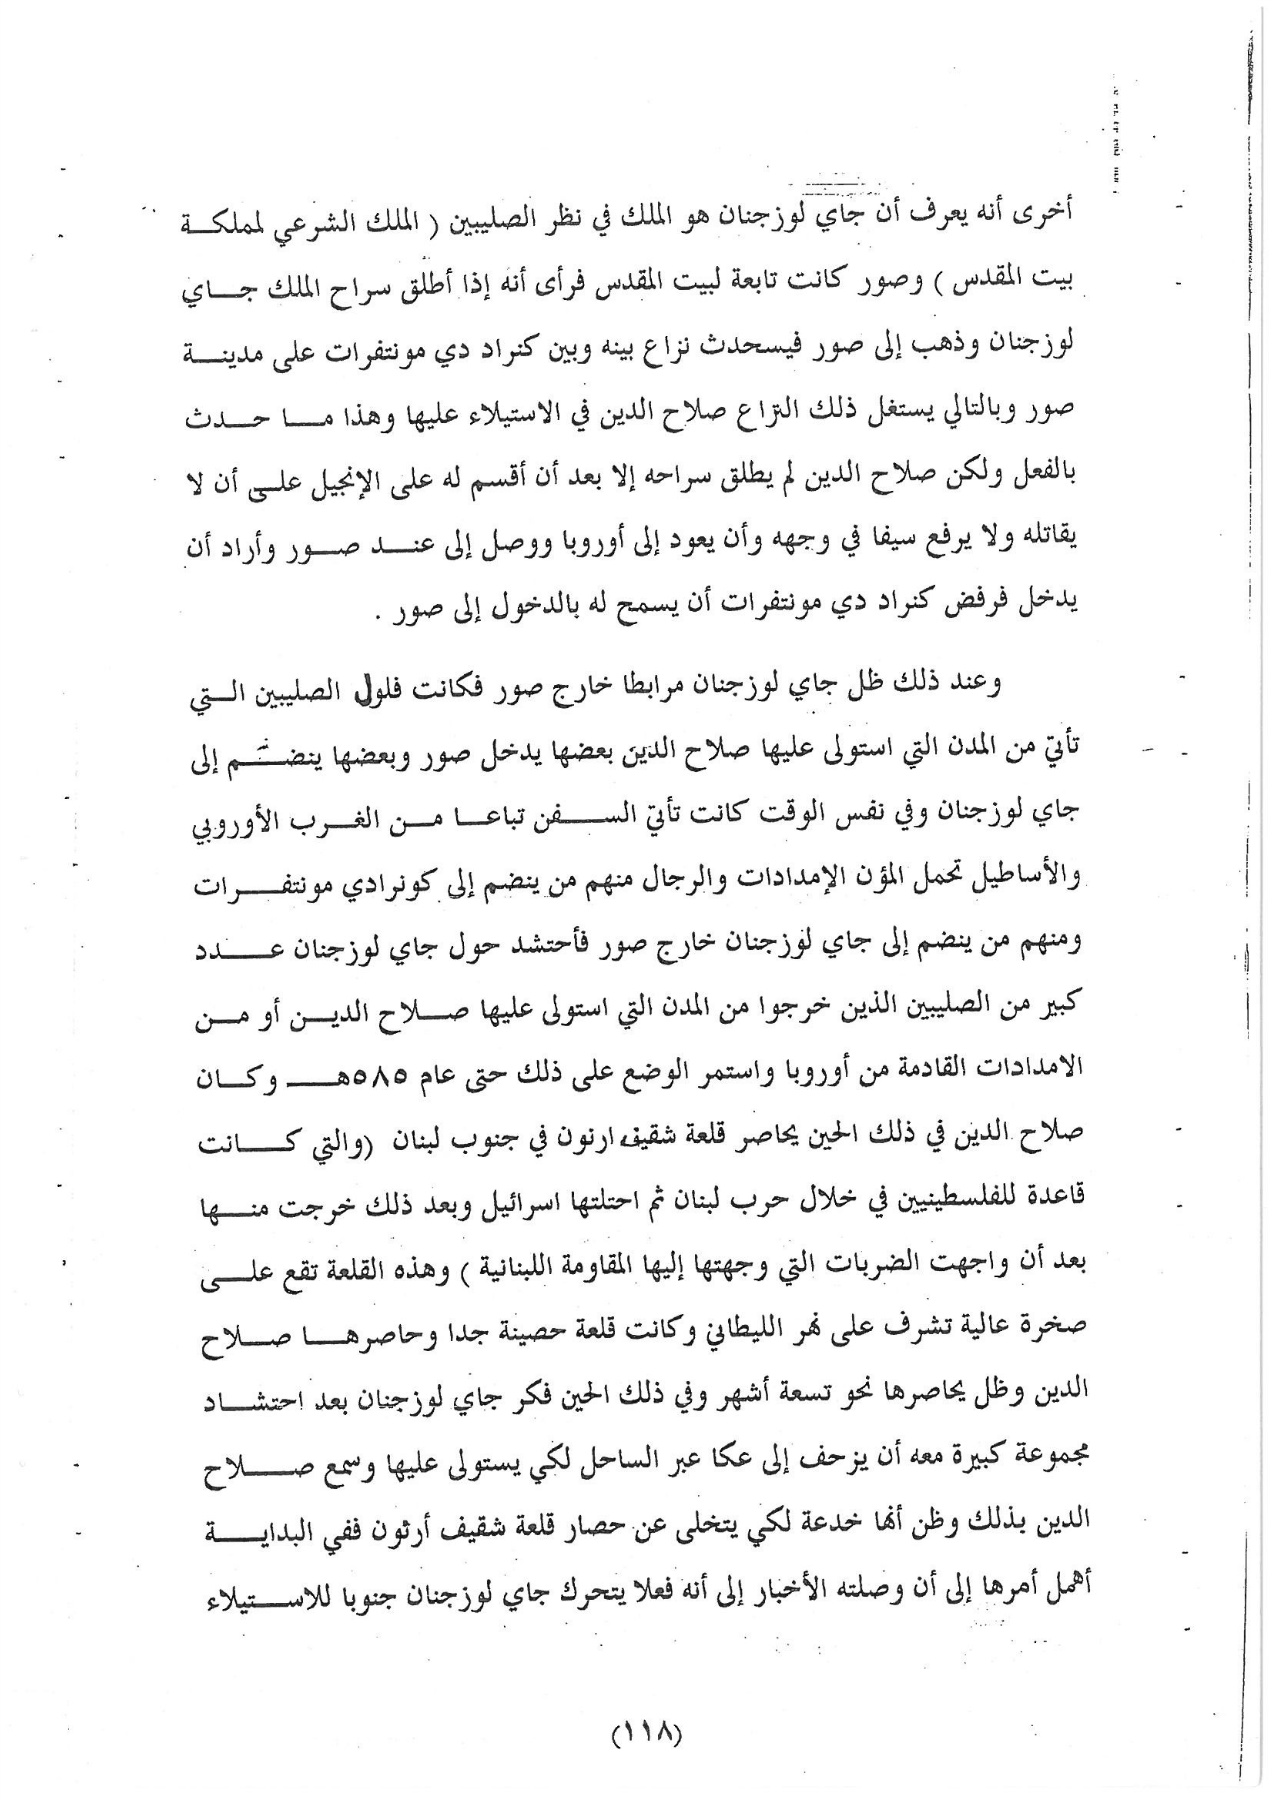 أخرى أنه يعرف أن جاي لوزجنان هو الملك في نظر الصليبين ( الملك الشرعي لمملكة
بيت المقدس ) وصور كانت تابعة لبيت المقدس فرأى أنه إذا أطلق سراح الملك جاي
لوزجنان وذهب إلى صور فيسحدث نزاع بينه وبين كنراد دي مونتفرات على مدينة
صور وبالتالي يستغل ذلك النزاع صلاح الدين في الاستيلاء عليها وهذا ما حدث
بالفعل ولكن صلاح الدين لم يطلق سراحه إلا بعد أن أقسم له على الإنجيل على أن لا
يقاتله ولا يرفع سيفا في وجهه وأن يعود إلى أوروبا ووصل إلى عند صور وأراد أن
يدخل فرفض كنراد دي مونتفرات أن يسمح له بالدخول إلى صور .
وعند ذلك ظل جاي لوزجنان مرابطا خارج صور فكانت فلول الصليبين التي
تأتي من المدن التي استولى عليها صلاح الدين بعضها يدخل صور وبعضها ينضم إلى
جاي لوزجنان وفي نفس الوقت كانت تأتي السفن تباعا من الغرب الأوروبي
والأساطيل تحمل المؤن الإمدادات والرجال منهم من ينضم إلى كونرادي مونتفرات
ومنهم من ينضم إلى جاي لوزجنان خارج صور فأحتشد حول جاي لوزجنان عدد
كبير من الصليبين الذين خرجوا من المدن التي استولى عليها صلاح الدين أو من
الامدادات القادمة من أوروبا واستمر الوضع على ذلك حتى عام ٥٨٥هـ وكان
صلاح الدين في ذلك الحين يحاصر قلعة شقيف ارنون في جنوب لبنان (والتي كانت
قاعدة للفلسطينيين في خلال حرب لبنان ثم احتلتها اسرائيل وبعد ذلك خرجت منها
بعد أن واجهت الضربات التي وجهتها إليها المقاومة اللبنانية ) وهذه القلعة تقع على
صخرة عالية تشرف على نهر الليطاني وكانت قلعة حصينة جدا وحاصرها صلاح
الدين وظل يحاصرها نحو تسعة أشهر وفي ذلك الحين فكر جاي لوزجنان بعد احتشاد
مجموعة كبيرة معه أن يزحف إلى عكا عبر الساحل لكي يستولى عليها وسمع صلاح
الدين بذلك وظن أنها خدعة لكي يتخلى عن حصار قلعة شقيف أرثون ففي البداية
أهمل أمرها إلى أن وصلته الأخبار إلى أنه فعلا يتحرك جاي لوزجنان جنوبا للاستيلاء
(١١٨)